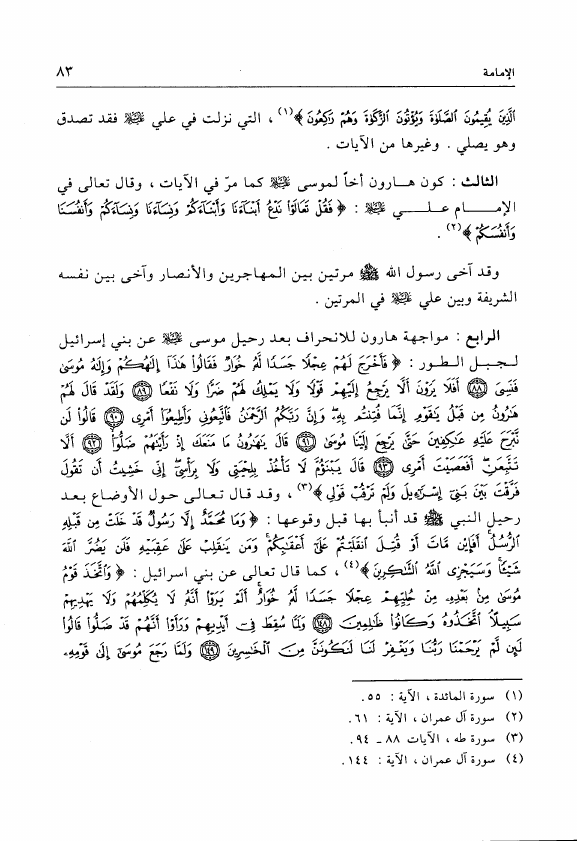 الإمامة ٨٣
ٱلَّذِينَ يُقِيمُونَ ٱلصَّلَوٰةَ وَيُؤْتُونَ ٱلزَّكَوٰةَ وَهُمْ رَٰكِعُونَ ﴾(١) ، التي نزلت في علي عليه السلام فقد تصدق
وهو يصلي . وغيرها من الآيات .
الثالث : كون هارون أخاً لموسى عليه السلام كما مرّ في الآيات ، وقال تعالى في
الإمام علي عليه السلام : ﴿ فَقُلْ تَعَالَوْا۟ نَدْعُ أَبْنَآءَنَا وَأَبْنَآءَكُمْ وَنِسَآءَنَا وَنِسَآءَكُمْ وَأَنفُسَنَا
وَأَنفُسَكُمْ ﴾(٢) .
وقد آخى رسول الله ﷺ مرتين بين المهاجرين والأنصار وآخى بين نفسه
الشريفة وبين علي عليه السلام في المرتين .
الرابع : مواجهة هارون للانحراف بعد رحيل موسى عليه السلام عن بني إسرائيل
لجبل الطور : ﴿ فَأَخْرَجَ لَهُمْ عِجْلًا جَسَدًا لَّهُۥ خُوَارٌ فَقَالُوا۟ هَٰذَآ إِلَٰهُكُمْ وَإِلَٰهُ مُوسَىٰ
فَنَسِىَ ﴿٨٨﴾ أَفَلَا يَرَوْنَ أَلَّا يَرْجِعُ إِلَيْهِمْ قَوْلًا وَلَا يَمْلِكُ لَهُمْ ضَرًّا وَلَا نَفْعًا ﴿٨٩﴾ وَلَقَدْ قَالَ لَهُمْ
هَٰرُونُ مِن قَبْلُ يَٰقَوْمِ إِنَّمَا فُتِنتُم بِهِۦ وَإِنَّ رَبَّكُمُ ٱلرَّحْمَٰنُ فَٱتَّبِعُونِى وَأَطِيعُوٓا۟ أَمْرِى ﴿٩٠﴾ قَالُوا۟ لَن
نَّبْرَحَ عَلَيْهِ عَٰكِفِينَ حَتَّىٰ يَرْجِعَ إِلَيْنَا مُوسَىٰ ﴿٩١﴾ قَالَ يَٰهَٰرُونُ مَا مَنَعَكَ إِذْ رَأَيْتَهُمْ ضَلُّوٓا۟ ﴿٩٢﴾ أَلَّا
تَتَّبِعَنِ أَفَعَصَيْتَ أَمْرِى ﴿٩٣﴾ قَالَ يَبْنَؤُمَّ لَا تَأْخُذْ بِلِحْيَتِى وَلَا بِرَأْسِىٓ إِنِّى خَشِيتُ أَن تَقُولَ
فَرَّقْتَ بَيْنَ بَنِىٓ إِسْرَٰٓءِيلَ وَلَمْ تَرْقُبْ قَوْلِى ﴾(٣) ، وقد قال تعالى حول الأوضاع بعد
رحيل النبي ﷺ قد أنبأ بها قبل وقوعها : ﴿ وَمَا مُحَمَّدٌ إِلَّا رَسُولٌ قَدْ خَلَتْ مِن قَبْلِهِ
ٱلرُّسُلُ أَفَإِي۟ن مَّاتَ أَوْ قُتِلَ ٱنقَلَبْتُمْ عَلَىٰٓ أَعْقَٰبِكُمْ وَمَن يَنقَلِبْ عَلَىٰ عَقِبَيْهِ فَلَن يَضُرَّ ٱللَّهَ
شَيْـًٔا وَسَيَجْزِى ٱللَّهُ ٱلشَّٰكِرِينَ ﴾(٤) ، كما قال تعالى عن بني اسرائيل : ﴿ وَٱتَّخَذَ قَوْمُ
مُوسَىٰ مِنۢ بَعْدِهِۦ مِنْ حُلِيِّهِمْ عِجْلًا جَسَدًا لَّهُۥ خُوَارٌ أَلَمْ يَرَوْا۟ أَنَّهُۥ لَا يُكَلِّمُهُمْ وَلَا يَهْدِيهِمْ
سَبِيلًا ٱتَّخَذُوهُ وَكَانُوا۟ ظَٰلِمِينَ ﴿١٤٨﴾ وَلَمَّا سُقِطَ فِىٓ أَيْدِيهِمْ وَرَأَوْا۟ أَنَّهُمْ قَدْ ضَلُّوا۟ قَالُوا۟
لَئِن لَّمْ يَرْحَمْنَا رَبُّنَا وَيَغْفِرْ لَنَا لَنَكُونَنَّ مِنَ ٱلْخَٰسِرِينَ ﴿١٤٩﴾ وَلَمَّا رَجَعَ مُوسَىٰٓ إِلَىٰ قَوْمِهِۦ
(١) سورة المائدة ، الآية : ٥٥.
(٢) سورة آل عمران ، الآية : ٦١.
(٣) سورة طه ، الآيات ٨٨ ـ ٩٤.
(٤) سورة آل عمران ، الآية : ١٤٤.